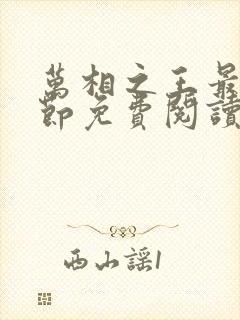 萬相之王最
節免費閱讀
西山謠1